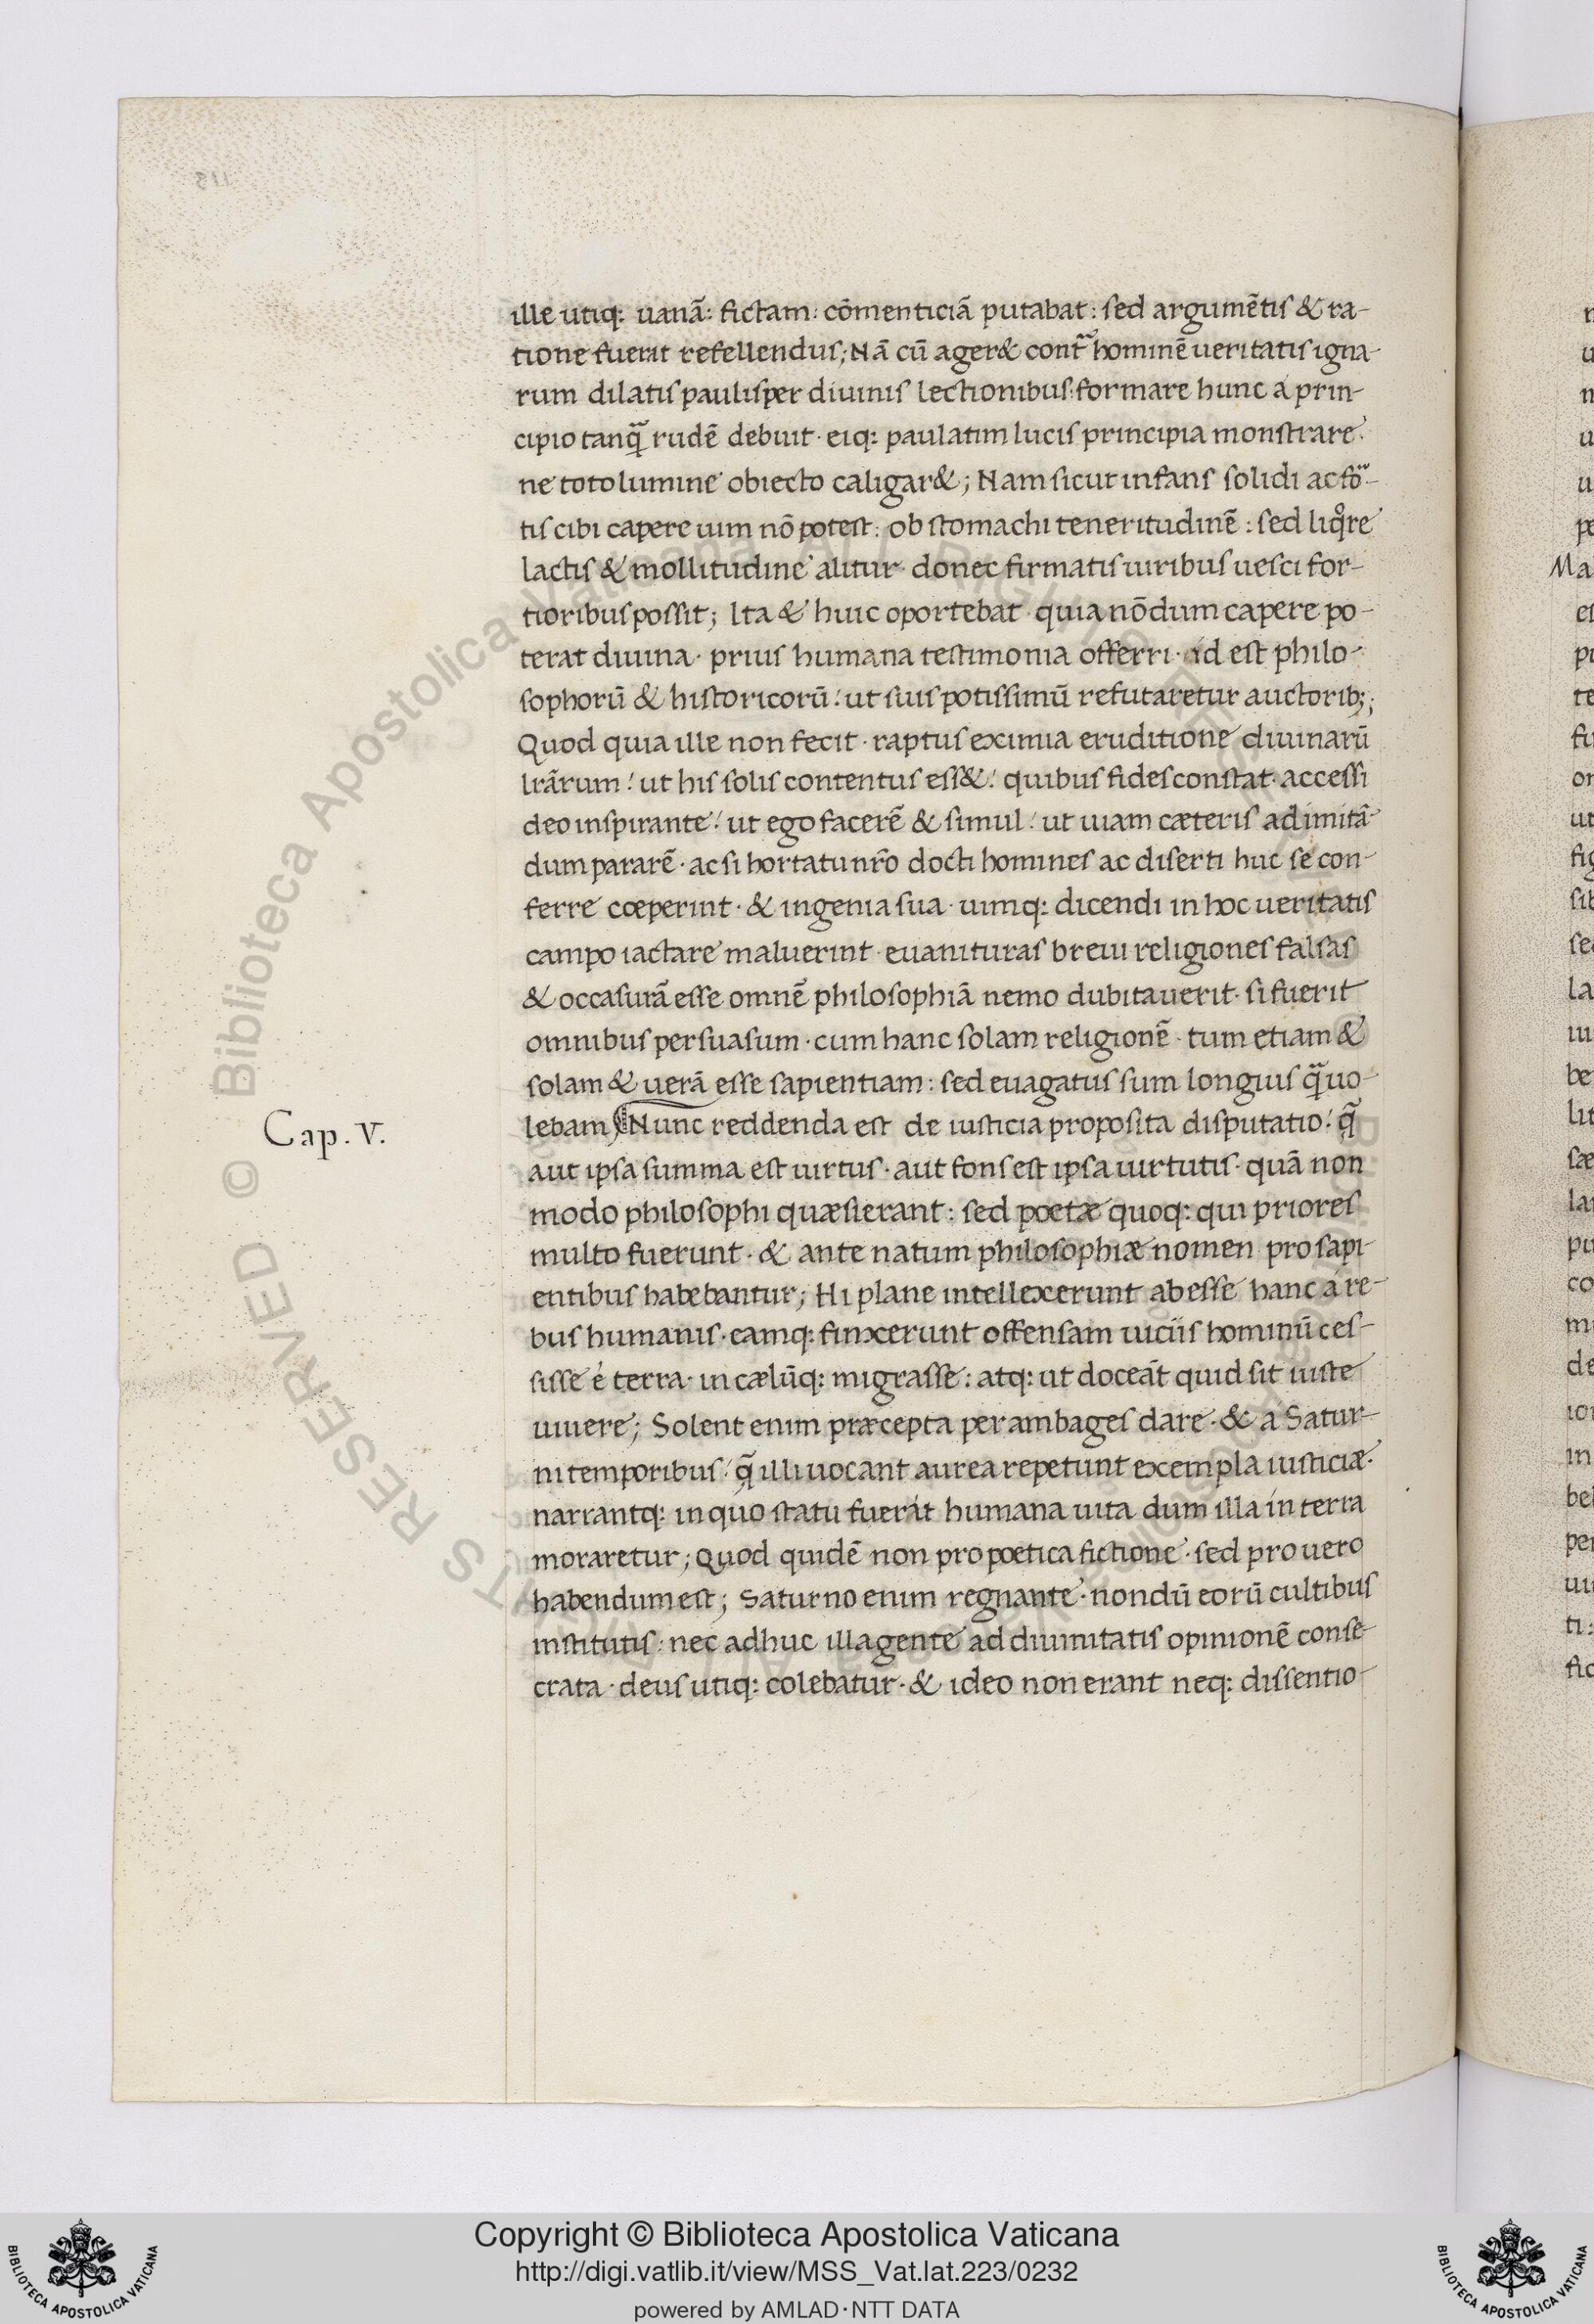 ille utiq: uanā: fictam: cōmenticiā putabat: sed argumētis & ra-
tione fuerat refellendus; Nā cū ager& contˉ hominē ueritatis igna-
rum dilatis paulisper diuinis lectionibus formare hunc á prin-
cipio tanq̄ rudē debuit · eiq: paulatim lucis principia monstrare ·
ne toto lumine obiecto caligar&; Nam sicut infans solidi ac fo-
tis cibi capere uim nō potest: ob stomachi teneritudinē: sed liqͦre
lactis & mollitudine alitur · donec firmatis uiribus uesci for-
tioribus possit; Ita & huic oportebat · quia nōdum capere po-
terat diuina · prius humana testimonia offerri · id est philo-
sophorū & historicorū! ut suis potissimū refutaretur auctorib;;
Quod quia ille non fecit · raptus eximia eruditione diuinarū
lrārum! ut his solis contentus ess&! quibus fides constat · accessi
deo inspirante! ut ego facerē & simul! ut uiam cæteris ad imitā-
dum pararē · ac si hortatu nr̄o docti homines ac diserti huc se con-
ferre cœperint · & ingenia sua · uimq: dicendi in hoc ueritatis
campo iactare maluerint · euanituras breui religiones falsas
& occasurā esse omnē philosophiā nemo dubitauerit · si fuerit
omnibus persuasum · cum hanc solam religionē · tum etiam &
solam & uerā esse sapientiam: sed euagatus sum longius q̄ uo-
Cap. V.
lebam; Nunc reddenda est de iusticia proposita disputatio! q̄
aut ipsa summa est uirtus · aut fons est ipsa uirtutis · quā non
modo philosophi quæsierant: sed poetæ quoq: qui priores
multo fuerunt · & ante natum philosophiæ nomen pro sapi-
entibus habebantur; Hi plane intellexerunt abesse hanc á re-
bus humanis · eamq: finxerunt offensam uiciis hominū ces-
sisse é terra · in cælūq: migrasse: atq: ut doceāt quid sit iuste
uiuere; Solent enim præcepta per ambages dare · & a Satur-
ni temporibus! q̄ illi uocant aurea repetunt exempla iusticiæ ·
narrantq: in quo statu fuerit humana uita dum illa in terra
moraretur; Quod quidē non pro poetica fictione · sed pro uero
habendum est; Saturno enim regnante · nondū eorū cultibus
institutis: nec adhuc illa gente ad diuinitatis opinionē conse-
crata · deus utiq: colebatur · & ideo non erant neq: dissentio-
Copyright © Biblioteca Apostolica Vaticana
http://digi.vatlib.it/view/MSS_Vat.lat.223/0232
powered by AMLAD·NTT DATA